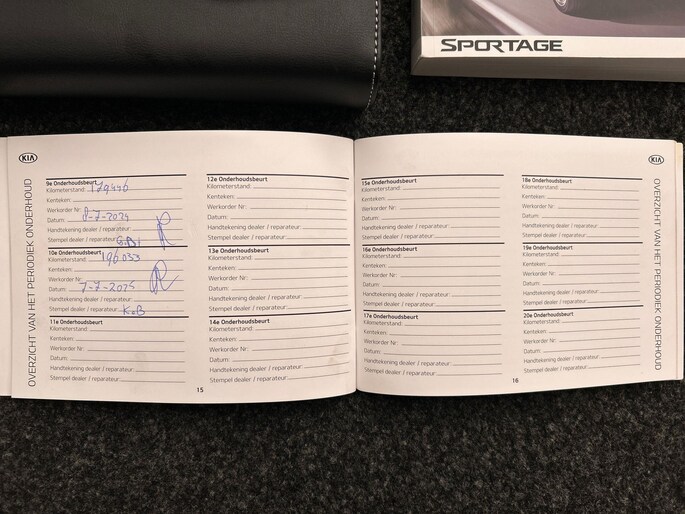 SPORTAGE
KIA
OVERZICHT VAN HET PERIODIEK ONDERHOUD
9e Onderhoudsbeurt
Kilometerstand: 179446
Kenteken:
Werkorder Nr:
Datum: 8-7-2024
Handtekening dealer / reparateur:
Stempel dealer / reparateur:
10e Onderhoudsbeurt
Kilometerstand: 196033
Kenteken:
Werkorder Nr:
Datum: 7-7-2025
Handtekening dealer / reparateur:
Stempel dealer / reparateur:
11e Onderhoudsbeurt
Kilometerstand:
Kenteken:
Werkorder Nr:
Datum:
Handtekening dealer / reparateur:
Stempel dealer / reparateur:
12e Onderhoudsbeurt
Kilometerstand:
Kenteken:
Werkorder Nr:
Datum:
Handtekening dealer / reparateur:
Stempel dealer / reparateur:
13e Onderhoudsbeurt
Kilometerstand:
Kenteken:
Werkorder Nr:
Datum:
Handtekening dealer / reparateur:
Stempel dealer / reparateur:
14e Onderhoudsbeurt
Kilometerstand:
Kenteken:
Werkorder Nr:
Datum:
Handtekening dealer / reparateur:
Stempel dealer / reparateur:
15
15e Onderhoudsbeurt
Kilometerstand:
Kenteken:
Werkorder Nr:
Datum:
Handtekening dealer / reparateur:
Stempel dealer / reparateur:
16e Onderhoudsbeurt
Kilometerstand:
Kenteken:
Werkorder Nr:
Datum:
Handtekening dealer / reparateur:
Stempel dealer / reparateur:
17e Onderhoudsbeurt
Kilometerstand:
Kenteken:
Werkorder Nr:
Datum:
Handtekening dealer / reparateur:
Stempel dealer / reparateur:
18e Onderhoudsbeurt
Kilometerstand:
Kenteken:
Werkorder Nr:
Datum:
Handtekening dealer / reparateur:
Stempel dealer / reparateur:
19e Onderhoudsbeurt
Kilometerstand:
Kenteken:
Werkorder Nr:
Datum:
Handtekening dealer / reparateur:
Stempel dealer / reparateur:
20e Onderhoudsbeurt
Kilometerstand:
Kenteken:
Werkorder Nr:
Datum:
Handtekening dealer / reparateur:
Stempel dealer / reparateur:
16
KIA
OVERZICHT VAN HET PERIODIEK ONDERHOUD